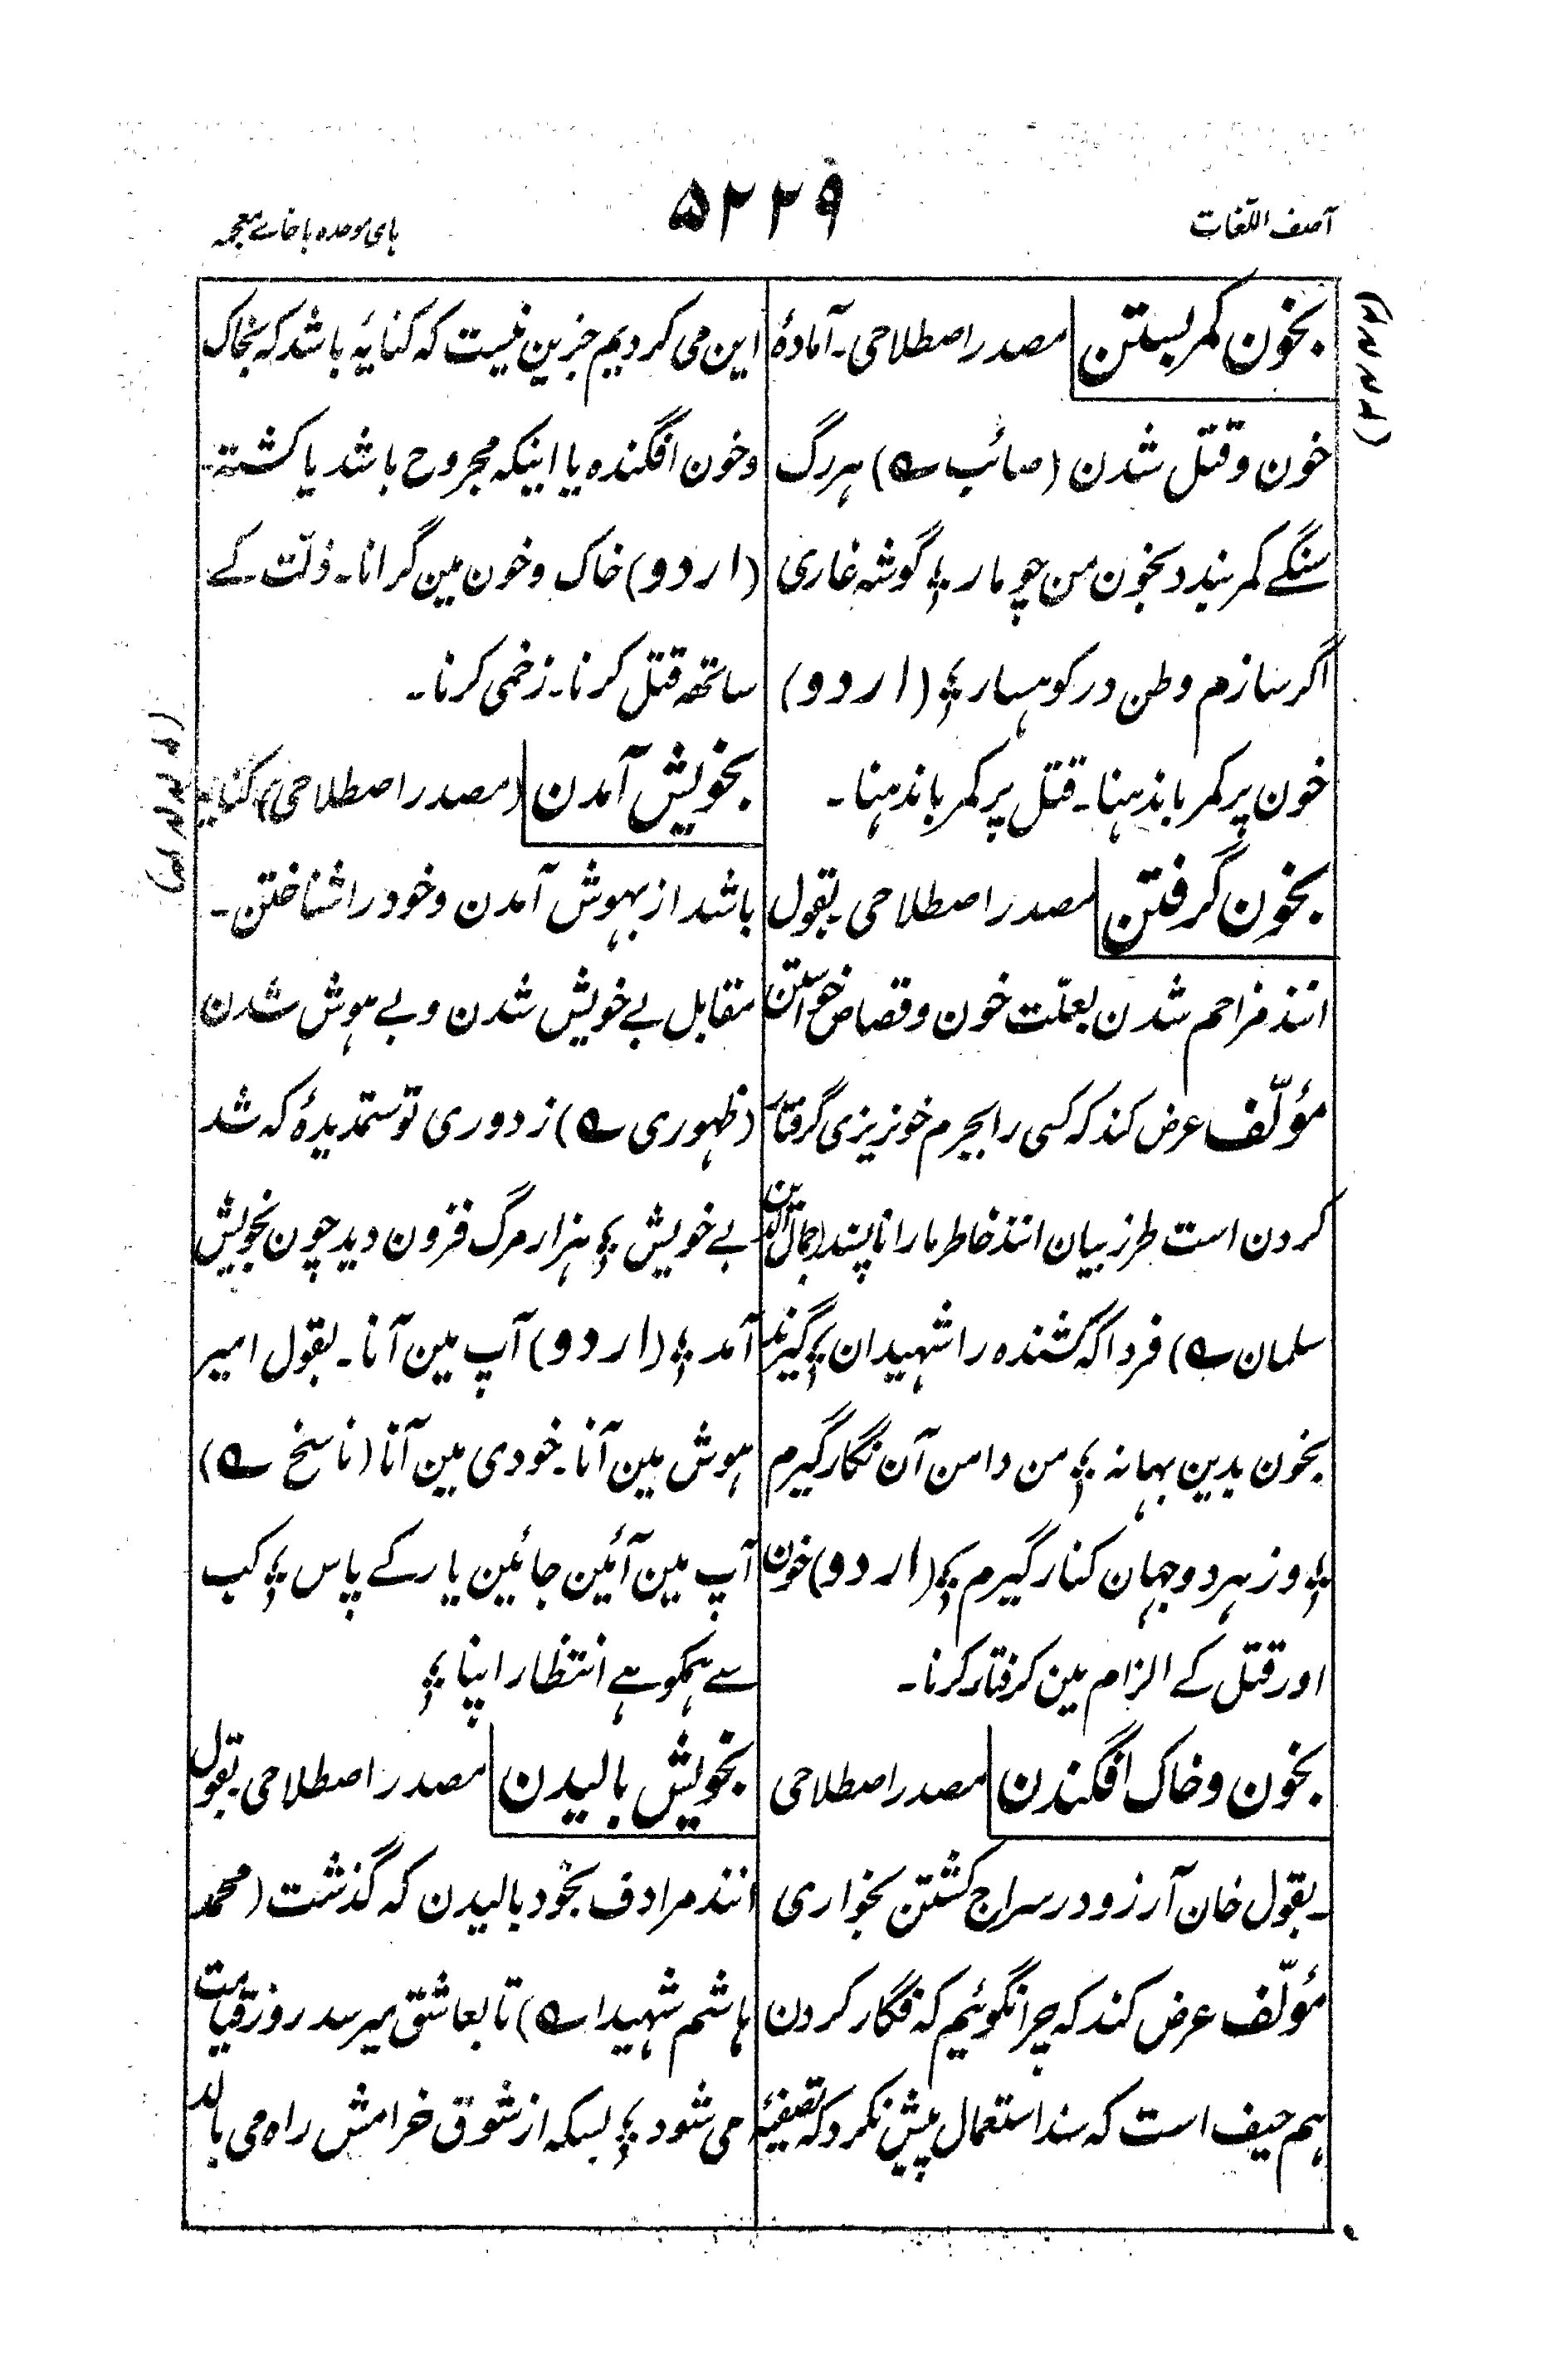 آصف اللّغات
۵۲۲۹
بای موحده با خاے معجمه
بخون کمر بستن مصدر اصطلاحی۔ آمادۂ
خون و قتل شدن (صائب ؎) ہر رگ
سنگے کمر بندد بخون من چو مار ؛ گوشہ غاری
اگر سازم وطن در کوہسار ؛ (اردو)
خون پر کمر باندہنا۔ قتل پر کمر باندہنا۔
بخون گرفتن مصدر اصطلاحی۔ بقول
انند مزاحم شدن بعلّت خون و قصاص خواستن
مؤلّف عرض کند کہ کسی را بجرم خونریزی گرفتار
کردن است طرز بیان انند خاطر ما را ناپسند (جمال الدین
سلمان ؎) فردا کہ کشندہ را شہیدان ؛ گیرند
بخون بدین بہانہ ؛ من دامن آن نگار گیرم
؛ وز ہر دو جہان کنار گیرم ؛ (اردو) خون
اور قتل کے الزام مین گرفتار کرنا۔
بخون و خاک افگندن مصدر اصطلاحی
۔ بقول خان آرزو در سراج کشتن بخواری
مؤلّف عرض کند کہ چرا نگوئیم کہ فگار کردن
ہم حیف است کہ سند استعمال پیش نکرد کہ تصفیۂ
این می کردیم جزین نیست کہ کنایۂ باشد کہ بخاک
و خون افگندہ یا اینکہ مجروح باشد یا کشتہ۔
(اردو) خاک و خون مین گرانا۔ ذلّت کے
ساتھہ قتل کرنا۔ زخمی کرنا۔
بخویش آمدن (مصدر اصطلاحی) کنایہ
باشد از بہوش آمدن و خود را شناختن۔
مقابل بے خویش شدن و بے ہوش شدن
(ظہوری ؎) ز دوری تو ستمدیدۂ کہ شد
بے خویش ؛ ہزار مرگ فزون دید چون بخویش
آمد ؛ (اردو) آپ مین آنا۔ بقول امیر
ہوش مین آنا۔ خودی مین آنا (ناسخ ؎)
آپ مین آئین جائین یار کے پاس ؛ کب
سے ہمکو ہے انتظار اپنا ؛
بخویش بالیدن مصدر اصطلاحی۔ بقول
انند مرادف بخود بالیدن کہ گذشت (محمد
ہاشم شہیدا ؎) تا بعاشق میرسد روز قیامت
می شود ؛ بسکہ از شوق خرامش راہ می بالد